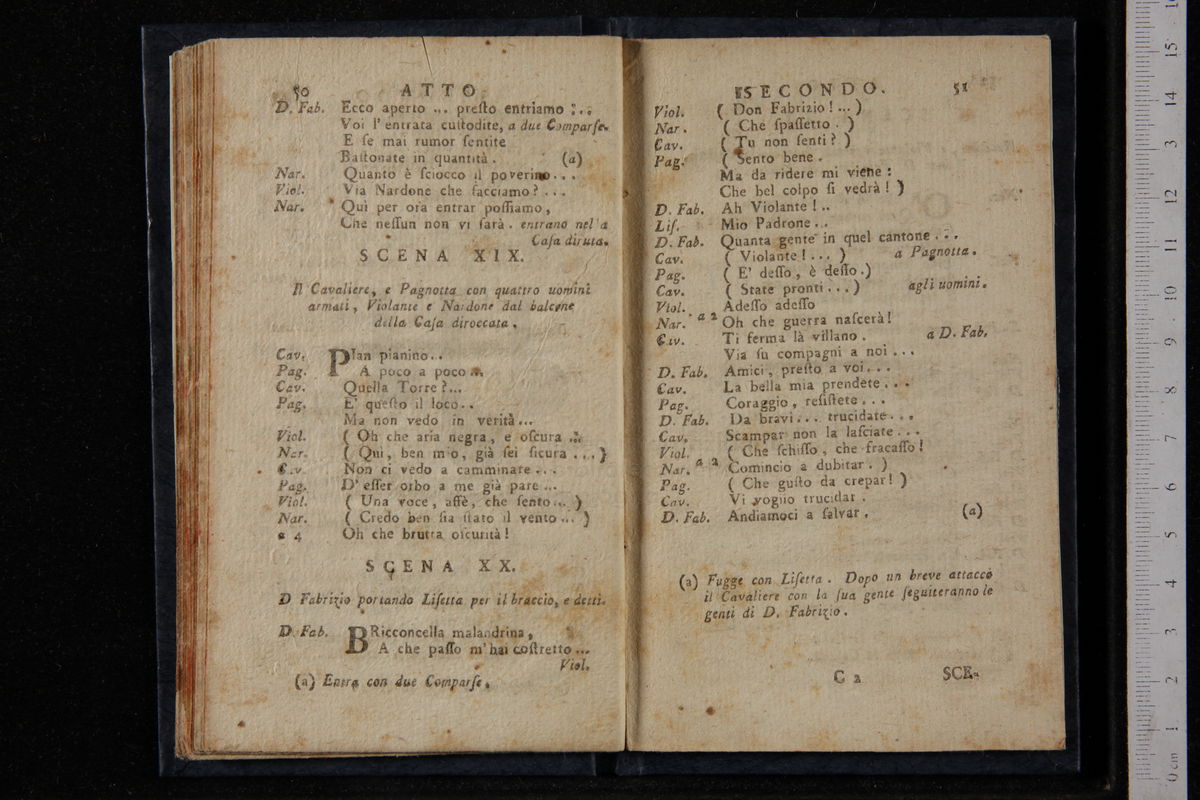 50 ATTO
D. Fab. Ecco aperto ... preſto entriamo ...
Voi l' entrata cuſtodite, a due Comparſe.
E ſe mai rumor ſentite
Baſtonate in quantità. (a)
Nar. Quanto è ſciocco il poverino...
Viol. Via Nardone che facciamo? ...
Nar. Quì per ora entrar poſſiamo,
Che neſſun non vi ſarà. entrano nella
Caſa diruta.
SCENA XIX.
Il Cavaliere, e Pagnotta con quattro uomini
armati, Violante e Nardone dal balcone
della Caſa diroccata.
Cav. PIan pianino..
Pag. A poco a poco...
Cav. Quella Torre?...
Pag. E' queſto il loco..
Ma non vedo in verità...
Viol. ( Oh che aria negra, e oſcura ...
Nar. ( Qui, ben mio, già ſei ſicura ...)
Cav. Non ci vedo a camminare ...
Pag. D' eſſer orbo a me già pare ...
Viol. ( Una voce, affè, che ſento... )
Nar. ( Credo ben ſia ſtato il vento... )
a 4 Oh che brutta oſcurità!
SCENA XX.
D Fabrizio portando Liſetta per il braccio, e detti.
D. Fab. BRicconcella malandrina,
A che paſſo m' hai coſtretto...
Viol.
(a) Entra con due Comparſe.
SECONDO. 51
Viol. ( Don Fabrizio! ... )
Nar. ( Che ſpaſſetto. )
Cav. ( Tu non ſenti? )
Pag. ( Sento bene.
Ma da ridere mi viene:
Che bel colpo ſi vedrà! )
D. Fab. Ah Violante! ..
Liſ. Mio Padrone...
D. Fab. Quanta gente in quel cantone...
Cav. ( Violante! ... ) a Pagnotta.
Pag. ( E' deſſo, è deſſo.)
Cav. ( State pronti...) agli uomini.
Viol. Adeſſo adeſſo
Nar. a 2 Oh che guerra naſcerà!
Cav. Ti ferma là villano. a D. Fab.
Via ſu compagni a noi...
D. Fab. Amici, preſto a voi...
Cav. La bella mia prendete...
Pag. Coraggio, reſiſtete...
D. Fab. Da bravi... trucidate...
Cav. Scampar non la laſciate...
Viol. ( Che ſchiſſo, che fracaſſo!
Nar. a 2 Comincio a dubitar. )
Pag. ( Che guſto da crepar! )
Cav. Vi voglio trucidar.
D. Fab. Andiamoci a ſalvar. (a)
(a) Fugge con Liſetta. Dopo un breve attacco
il Cavaliere con la ſua gente ſeguiteranno le
genti di D. Fabrizio.
C 2 SCE-